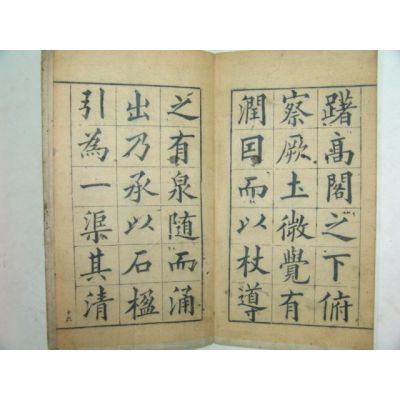 躇高閣之下俯
察厥土微覺有
潤因而以杖導
之有泉隨而涌
出乃承以石檻
引為一渠其清